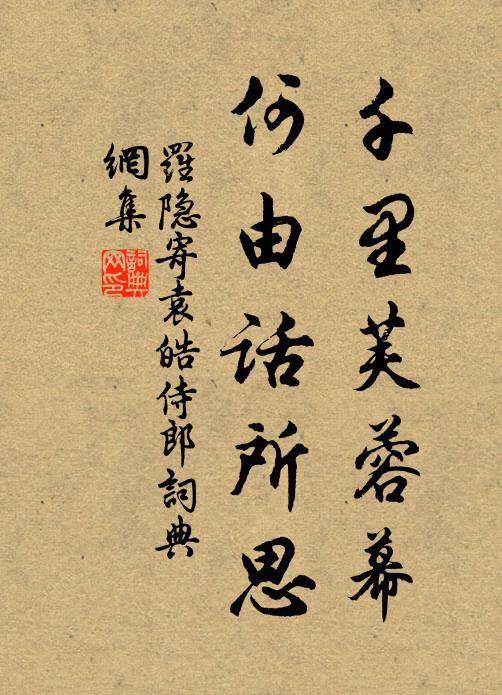 千里芙蓉幕
何由話所思
羅隐寄袁皓侍郎詞典
網集
詞典
网印